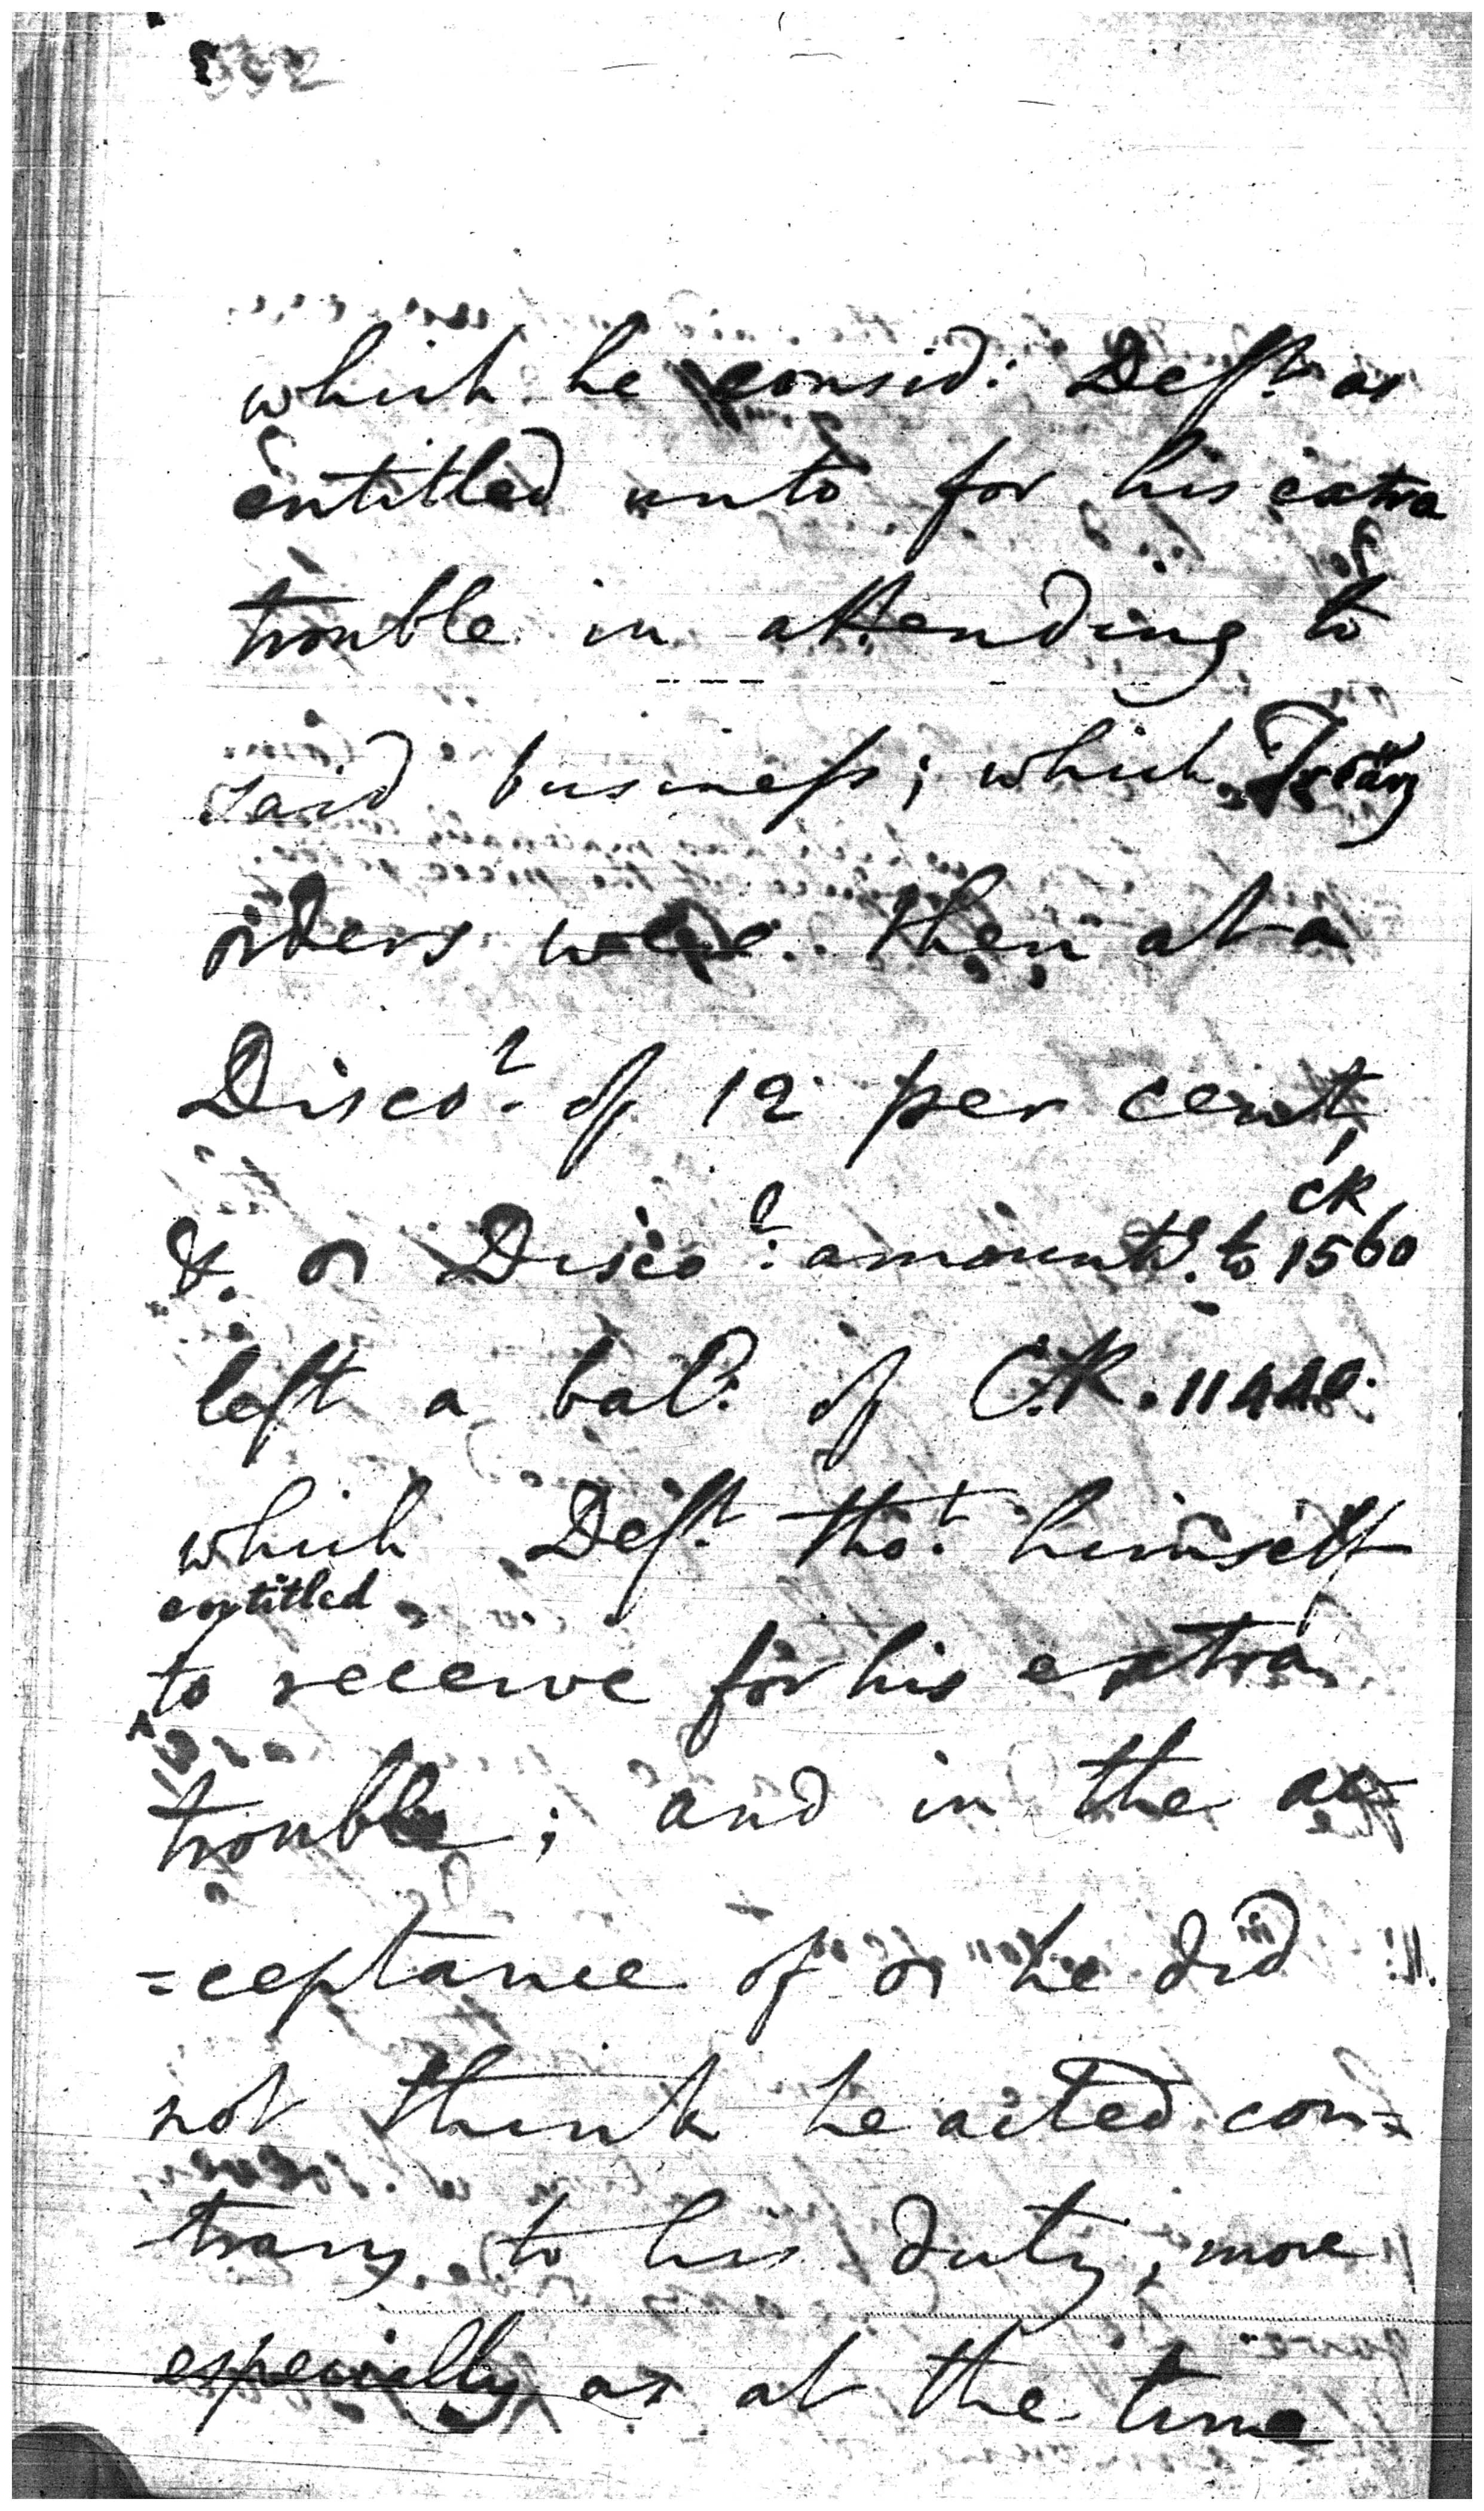 332
which he consid: Deft. as
entitled unto for his extra
trouble in attending to
said business; which Treäsy
orders were then at a
Discot. of 12 per cent,
& or Discot: amountd. to CK 1560
left a bale. of C.K. 11440.
which Deft. thot. himself
entitled
to receive for his extra
trouble; and in the ac-
=ceptance of or he did
not think he acted con-
trary to his duty, more
especially as at the time